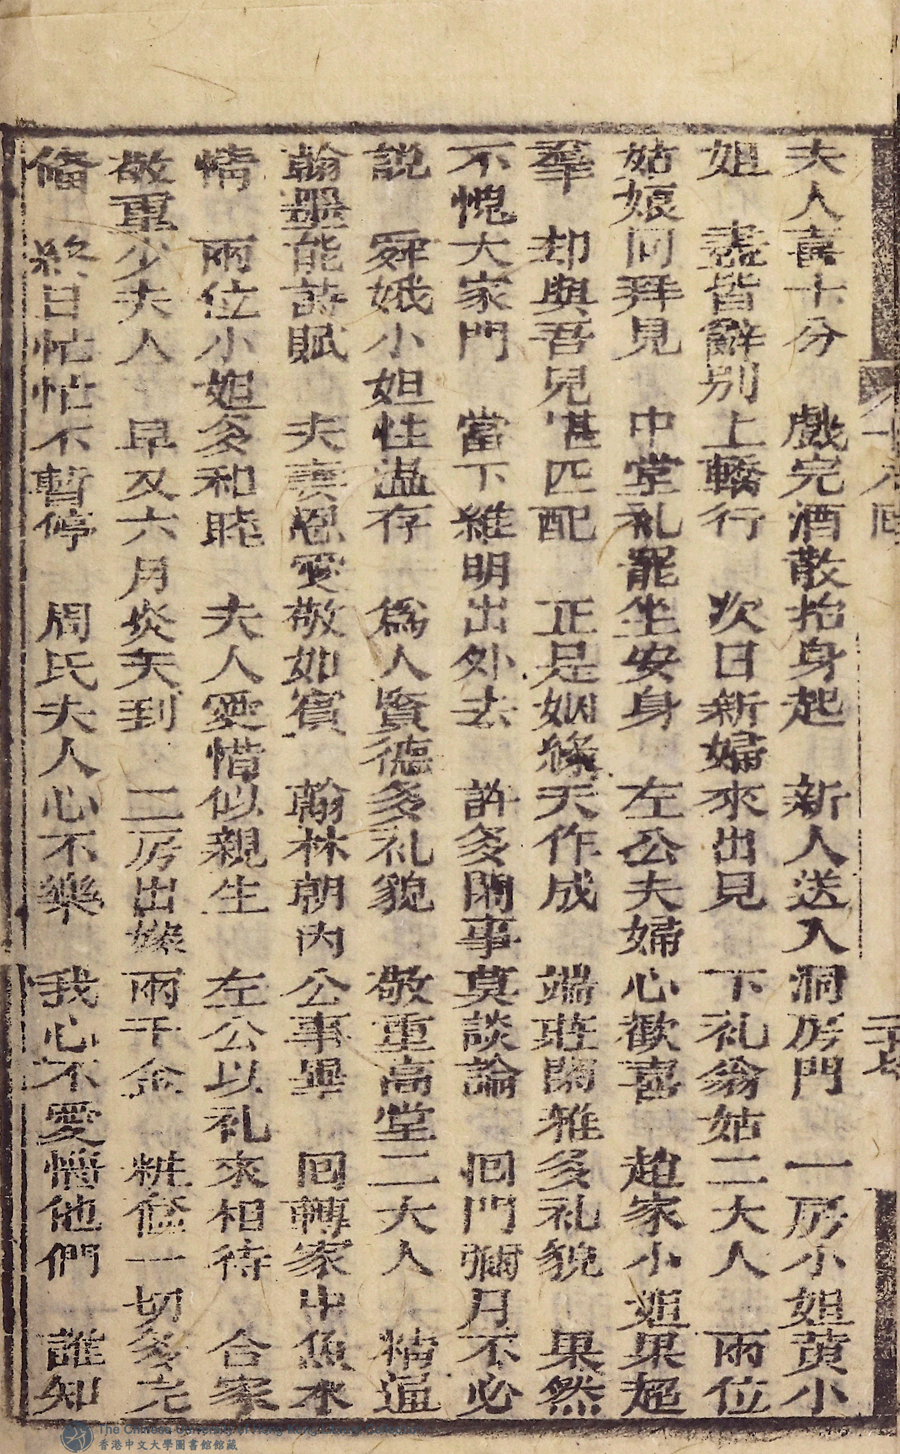 夫人喜十分　戲完酒散抬身起　新人送入洞房門　一房小姐黄小
姐　盡皆辭別上轎行　次日新婦來出見　下礼翁姑二大人　兩位
姑娘同拜見　中堂礼罷坐安身　左公夫婦心歡喜　趙家小姐果超
羣　却與吾兒堪匹配　正是姻緣天作成　端莊閑雅多礼貌　果然
不愧大家門　當下維明出外去　許多閑事莫談論　囘門彌月不必
説　舜娥小姐性溫存　爲人賢德多礼貌　敬重高堂二大人　精通
翰墨能詩賦　夫妻恩愛敬如賓　翰林朝內公事畢　囘轉家中魚水
情　兩位小姐多和睦　夫人愛惜似親生　左公以礼來相待　合家
敬重少夫人　早及六月炎天到　二房出嫁兩千金　粧奩一切多完
偹　終日忙忙不暫停　周氏夫人心不樂　我心不愛他們　誰知
二十七
The Chinese University of Hong Kong
香港中文大學圖書館館藏